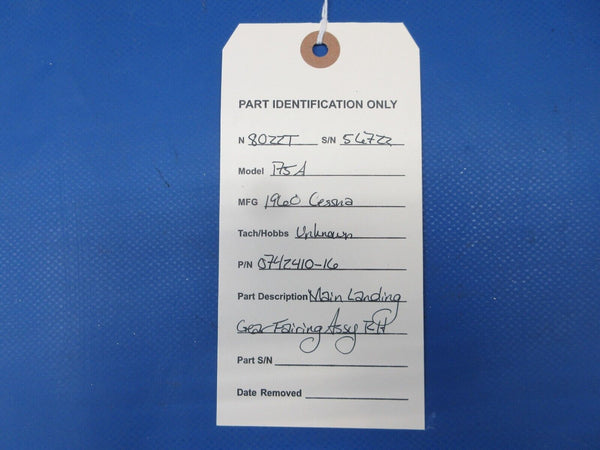 PART IDENTIFICATION ONLY
N 8022T S/N 56722
Model 175A
MFG 1960 Cessna
Tach/Hobbs Unknown
P/N 0742410-16
Part Description Main Landing
Gear Fairing Assy RH
Part S/N
Date Removed